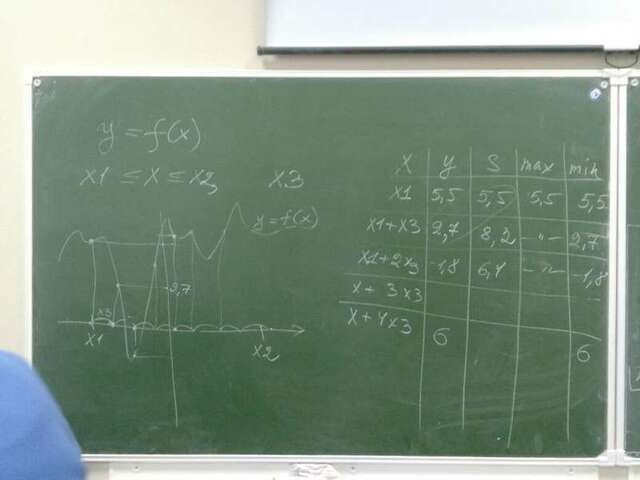 y = f(x)
x1 ≤ x ≤ x2 x3
y = f(x)
2,7
x3
x1 x2
x y S max min
x1 5,5 5,5 5,5 5,5
x1+x3 2,7 8,2 -"- 2,7
x1+2x3 -1,8 6,4 -"- -1,8
x + 3x3
x + 4x3 6 6